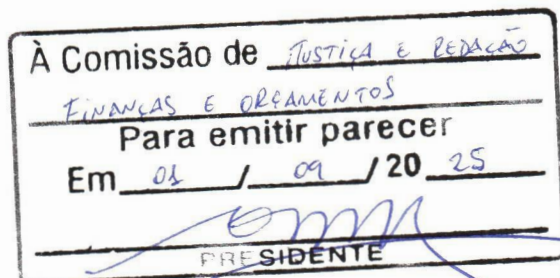 À Comissão de JUSTIÇA E REDAÇÃO
FINANÇAS E ORÇAMENTOS
Para emitir parecer
Em 01 / 09 / 20 25
PRESIDENTE